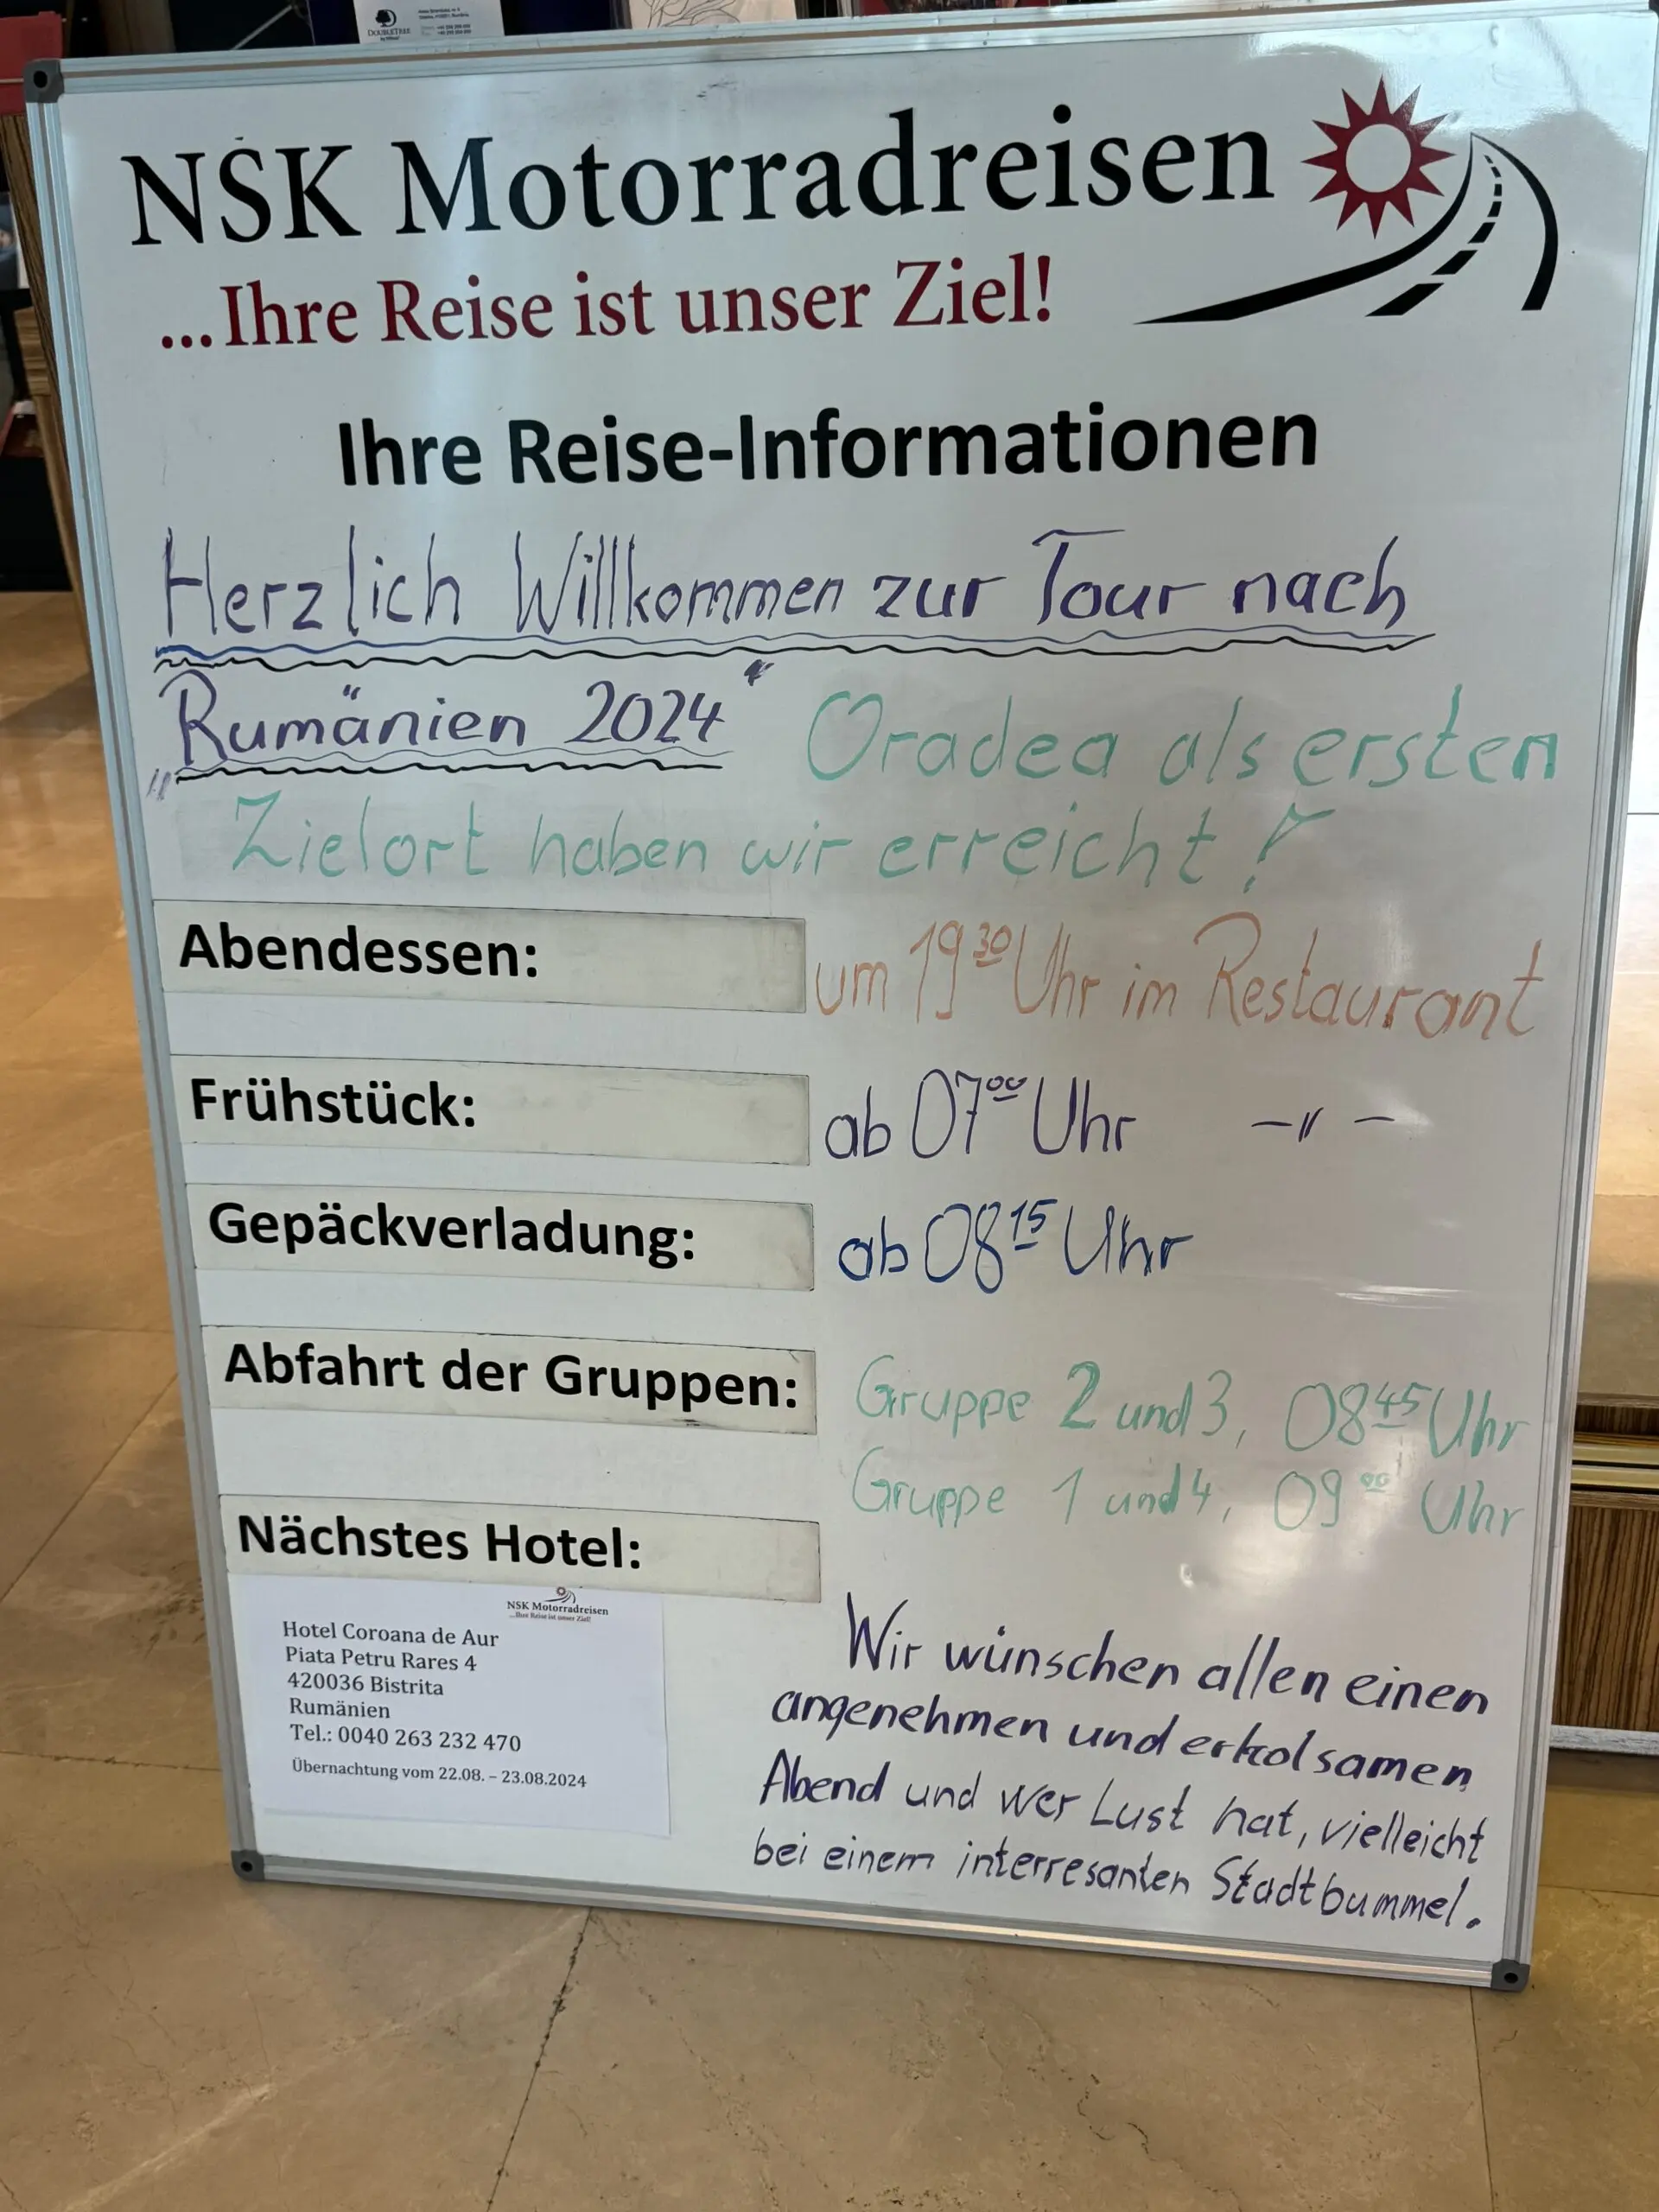 DOUBLETREE
by Hilton
NSK Motorradreisen
...Ihre Reise ist unser Ziel!
Ihre Reise-Informationen
Herzlich Willkommen zur Tour nach
„Rumänien 2024“ Oradea als ersten
Zielort haben wir erreicht!
Abendessen: um 19³⁰ Uhr im Restaurant
Frühstück: ab 07⁰⁰ Uhr —〃—
Gepäckverladung: ab 08¹⁵ Uhr
Abfahrt der Gruppen: Gruppe 2 und 3, 08⁴⁵ Uhr
Gruppe 1 und 4, 09⁰⁰ Uhr
Nächstes Hotel:
NSK Motorradreisen
...Ihre Reise ist unser Ziel!
Hotel Coroana de Aur
Piata Petru Rares 4
420036 Bistrita
Rumänien
Tel.: 0040 263 232 470
Übernachtung vom 22.08. – 23.08.2024
Wir wünschen allen einen
angenehmen und erholsamen
Abend und wer Lust hat, vielleicht
bei einem interresanten Stadtbummel.